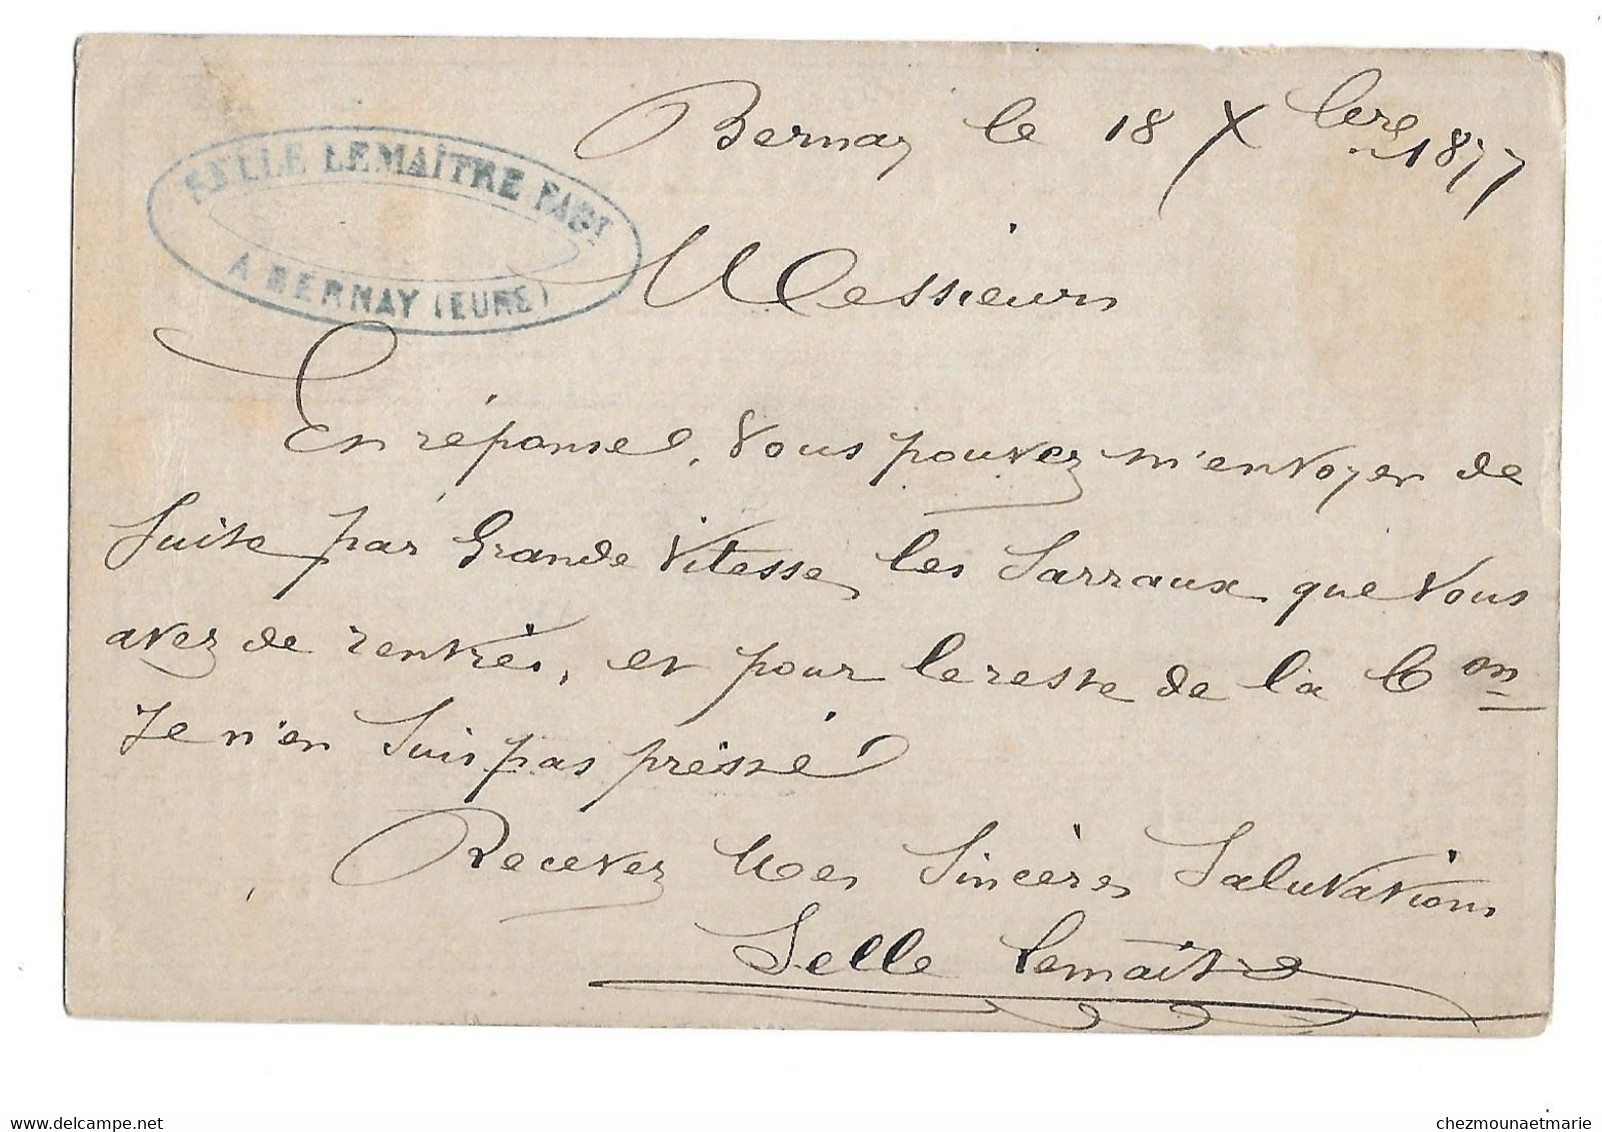 SELLE LEMAÎTRE FABT
A BERNAY (EURE)
Bernay le 18 Xbre 1877
Messieurs
En réponse, Vous pouvez m'envoyer de
Suite par Grande Vitesse, les Sarraux que Vous
avez de rentrés, et pour le reste de la Con
Je n'en Suis pas préssé
Recevez Mes Sincères Salutations
Selle Lemaître
chezmounaetmarie